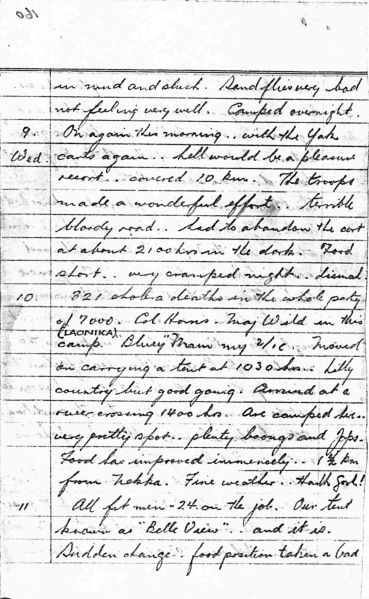 160
in mud and slush. Sandflies very bad
not feeling very well. Camped overnight.
9. On again this morning.. with the Yak
Wed. carts again.. hell would be a pleasure
resort.. covered 10 km. The troops
made a wonderful effort.. terrible
bloody road.. had to abandon the cart
at about 2100 hrs in the dark. Food
short.. very cramped night.. dismal.
10. 321 cholera deaths in the whole party
of 7000. Col Harris. Maj Wild in this
(LAONIKA)
camp. Bluey Mann my 2/ic. Moved
on carrying a tent at 1030 hrs.. hilly
country but good going. Arrived at a
river crossing 1400 hrs. Are camped here..
very pretty spot.. plenty boongs and Jps.
Food has improved immensely.. 1¾ km
from Nekka. Fine weather.. thank God!
11 All fit men - 24 on the job. Our tent
known as "Belle View".. and it is.
Sudden change.. food position taken a bad